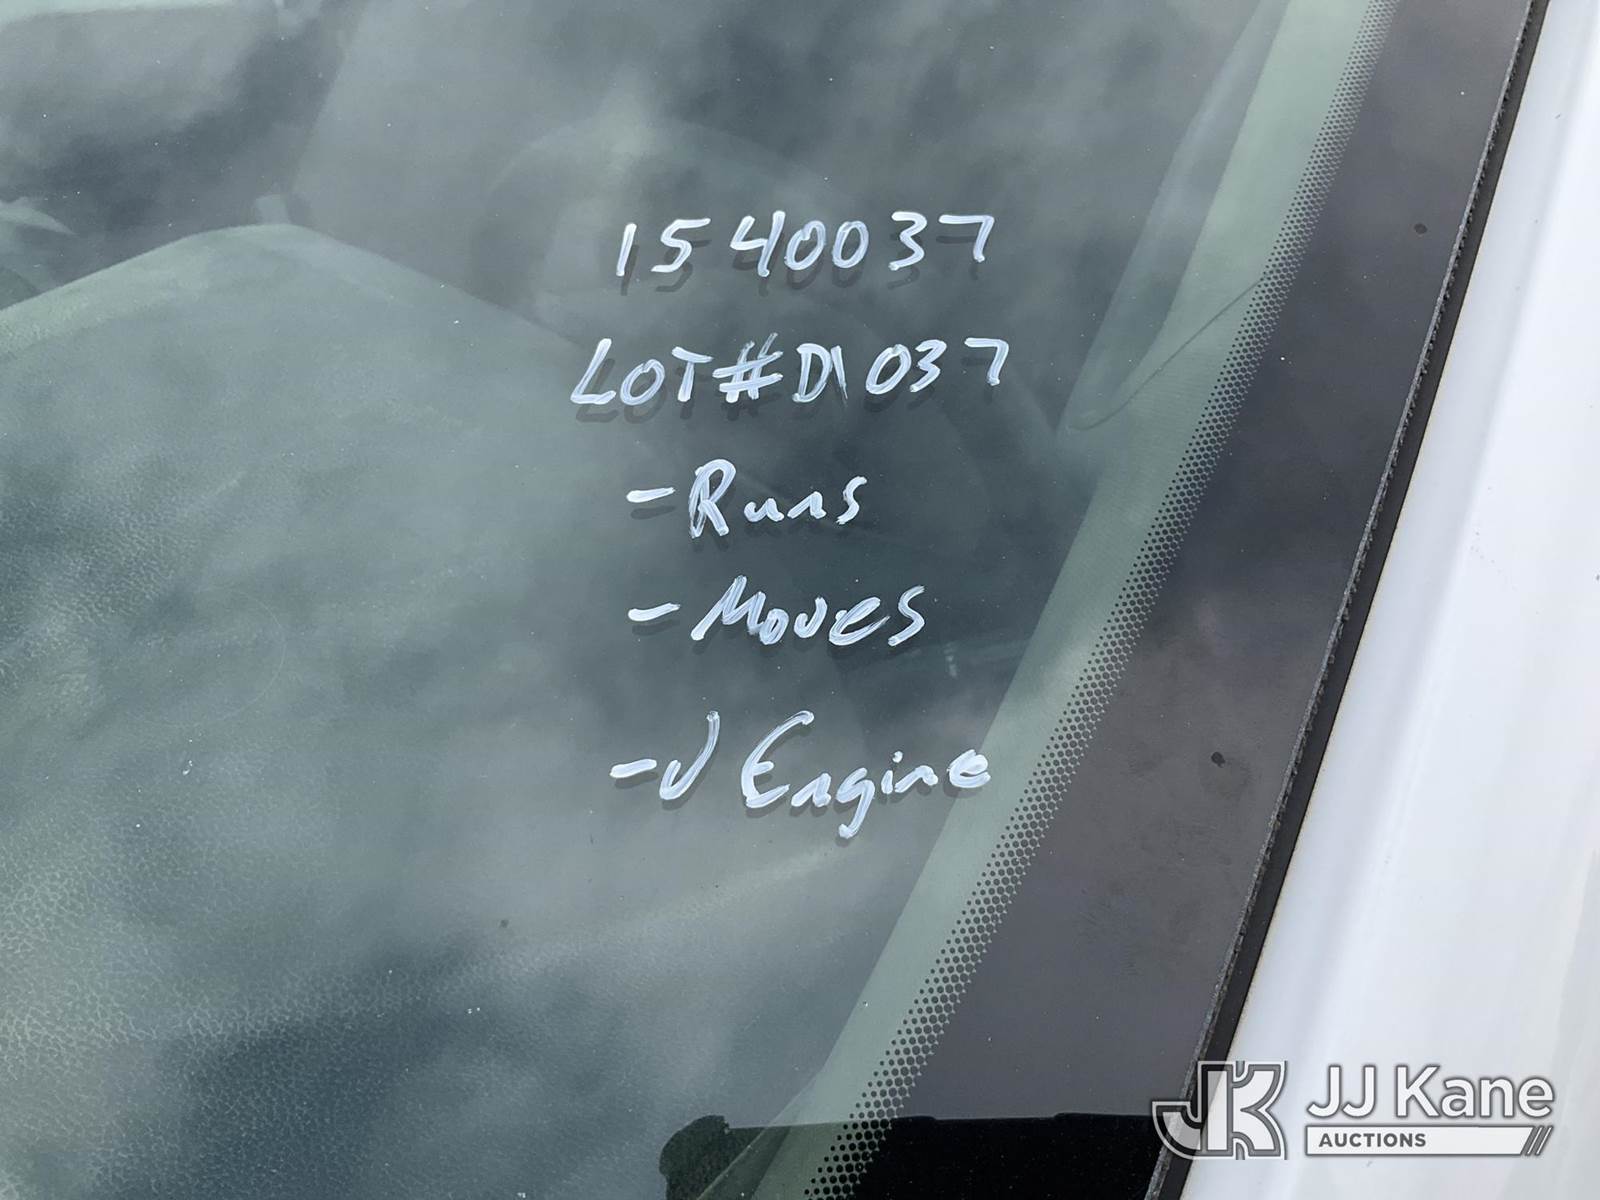 1540037
LOT#D1037
-Runs
-Moves
-√ Engine
JJ Kane
AUCTIONS